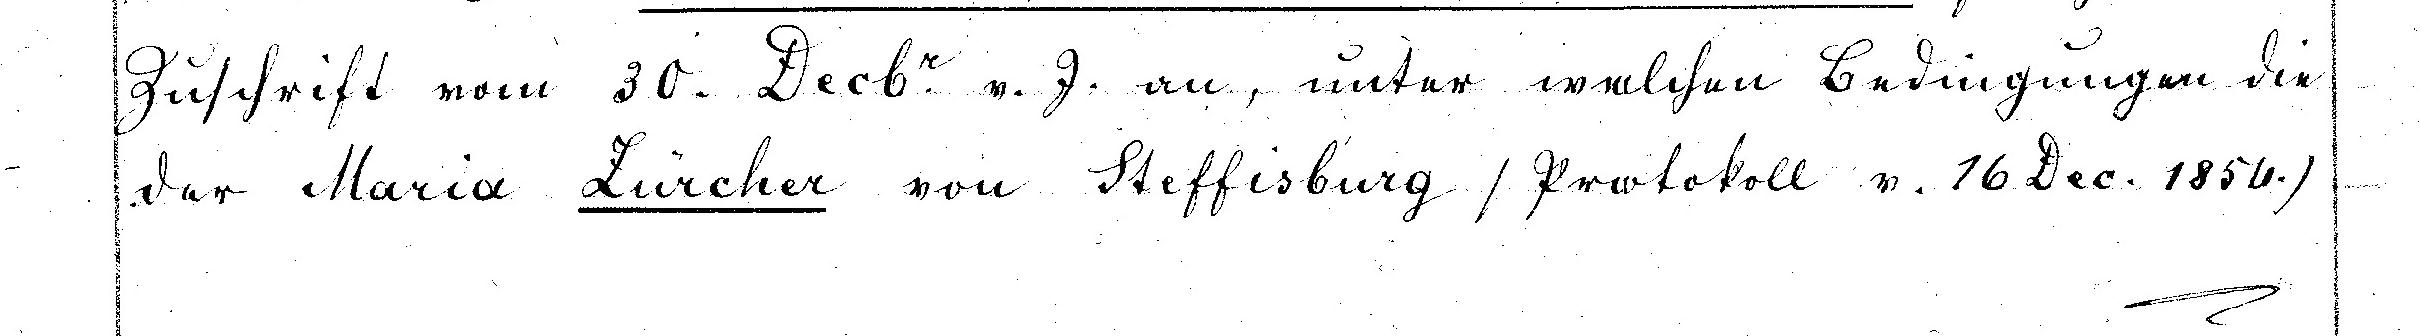 Zuschrift vom 30. Decbr. v. J. an, unter welchen Bedingungen die
der Maria Zürcher von Steffisburg / Protokoll v. 16 Dec. 1854.)